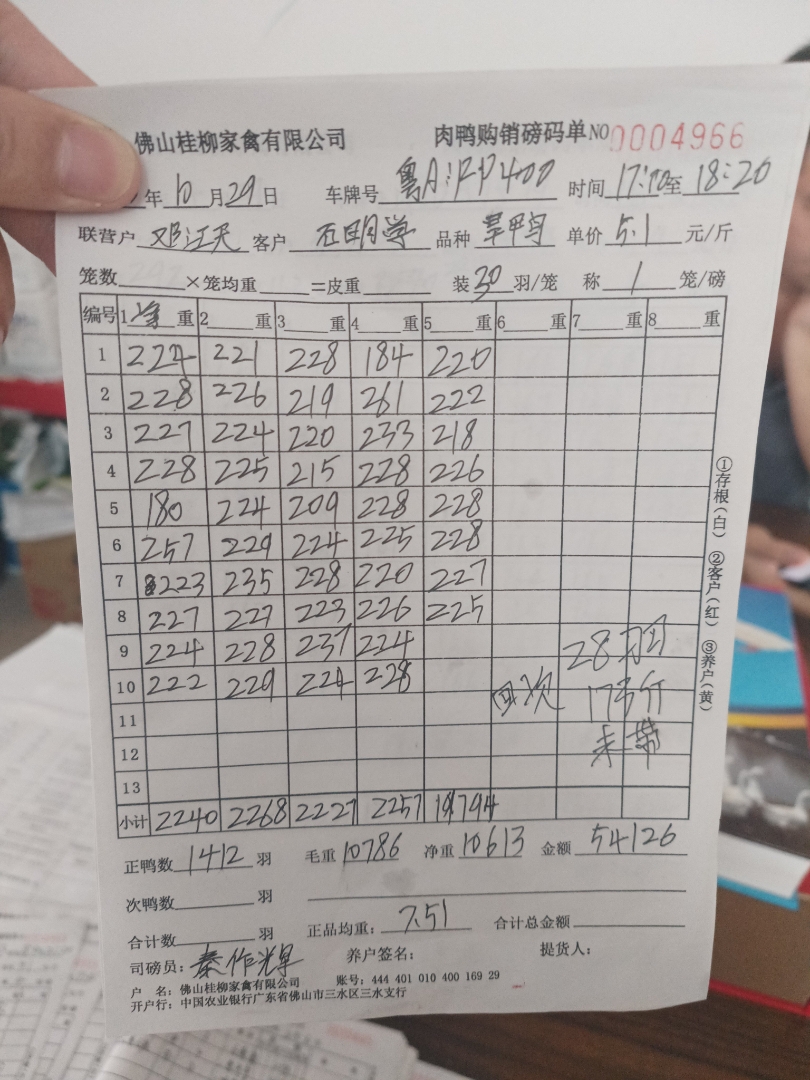 佛山桂柳家禽有限公司 肉鸭购销磅码单 NO 0004966
年 10 月 29 日 车牌号 粤A 400 时间 17:10 至 18:20
联营户 邓江天 客户 石明学 品种 旱鸭 单价 5.1 元/斤
笼数 ×笼均重 =皮重 装 30 羽/笼 称 1 笼/磅
编号 1 净 重 2 重 3 重 4 重 5 重 6 重 7 重 8 重
1 224 221 228 184 220
2 228 226 219 261 222
3 227 224 220 233 218
4 228 225 215 228 226
5 180 224 209 228 228
6 257 229 224 225 228
7 223 235 228 220 227
8 227 227 223 226 225
9 224 228 237 224
10 222 229 224 228
28羽
回次 173斤
未带
11
12
13
小计 2240 2268 2227 2257 1794
正鸭数 1412 羽 毛重 10786 净重 10613 金额 54126
次鸭数 羽
合计数 羽 正品均重: 7.51 合计总金额
司磅员: 秦作辉 养户签名: 提货人:
户 名: 佛山桂柳家禽有限公司 账号: 444 401 010 400 169 29
开户行: 中国农业银行广东省佛山市三水区三水支行
①存根(白) ②客户(红) ③养户(黄)